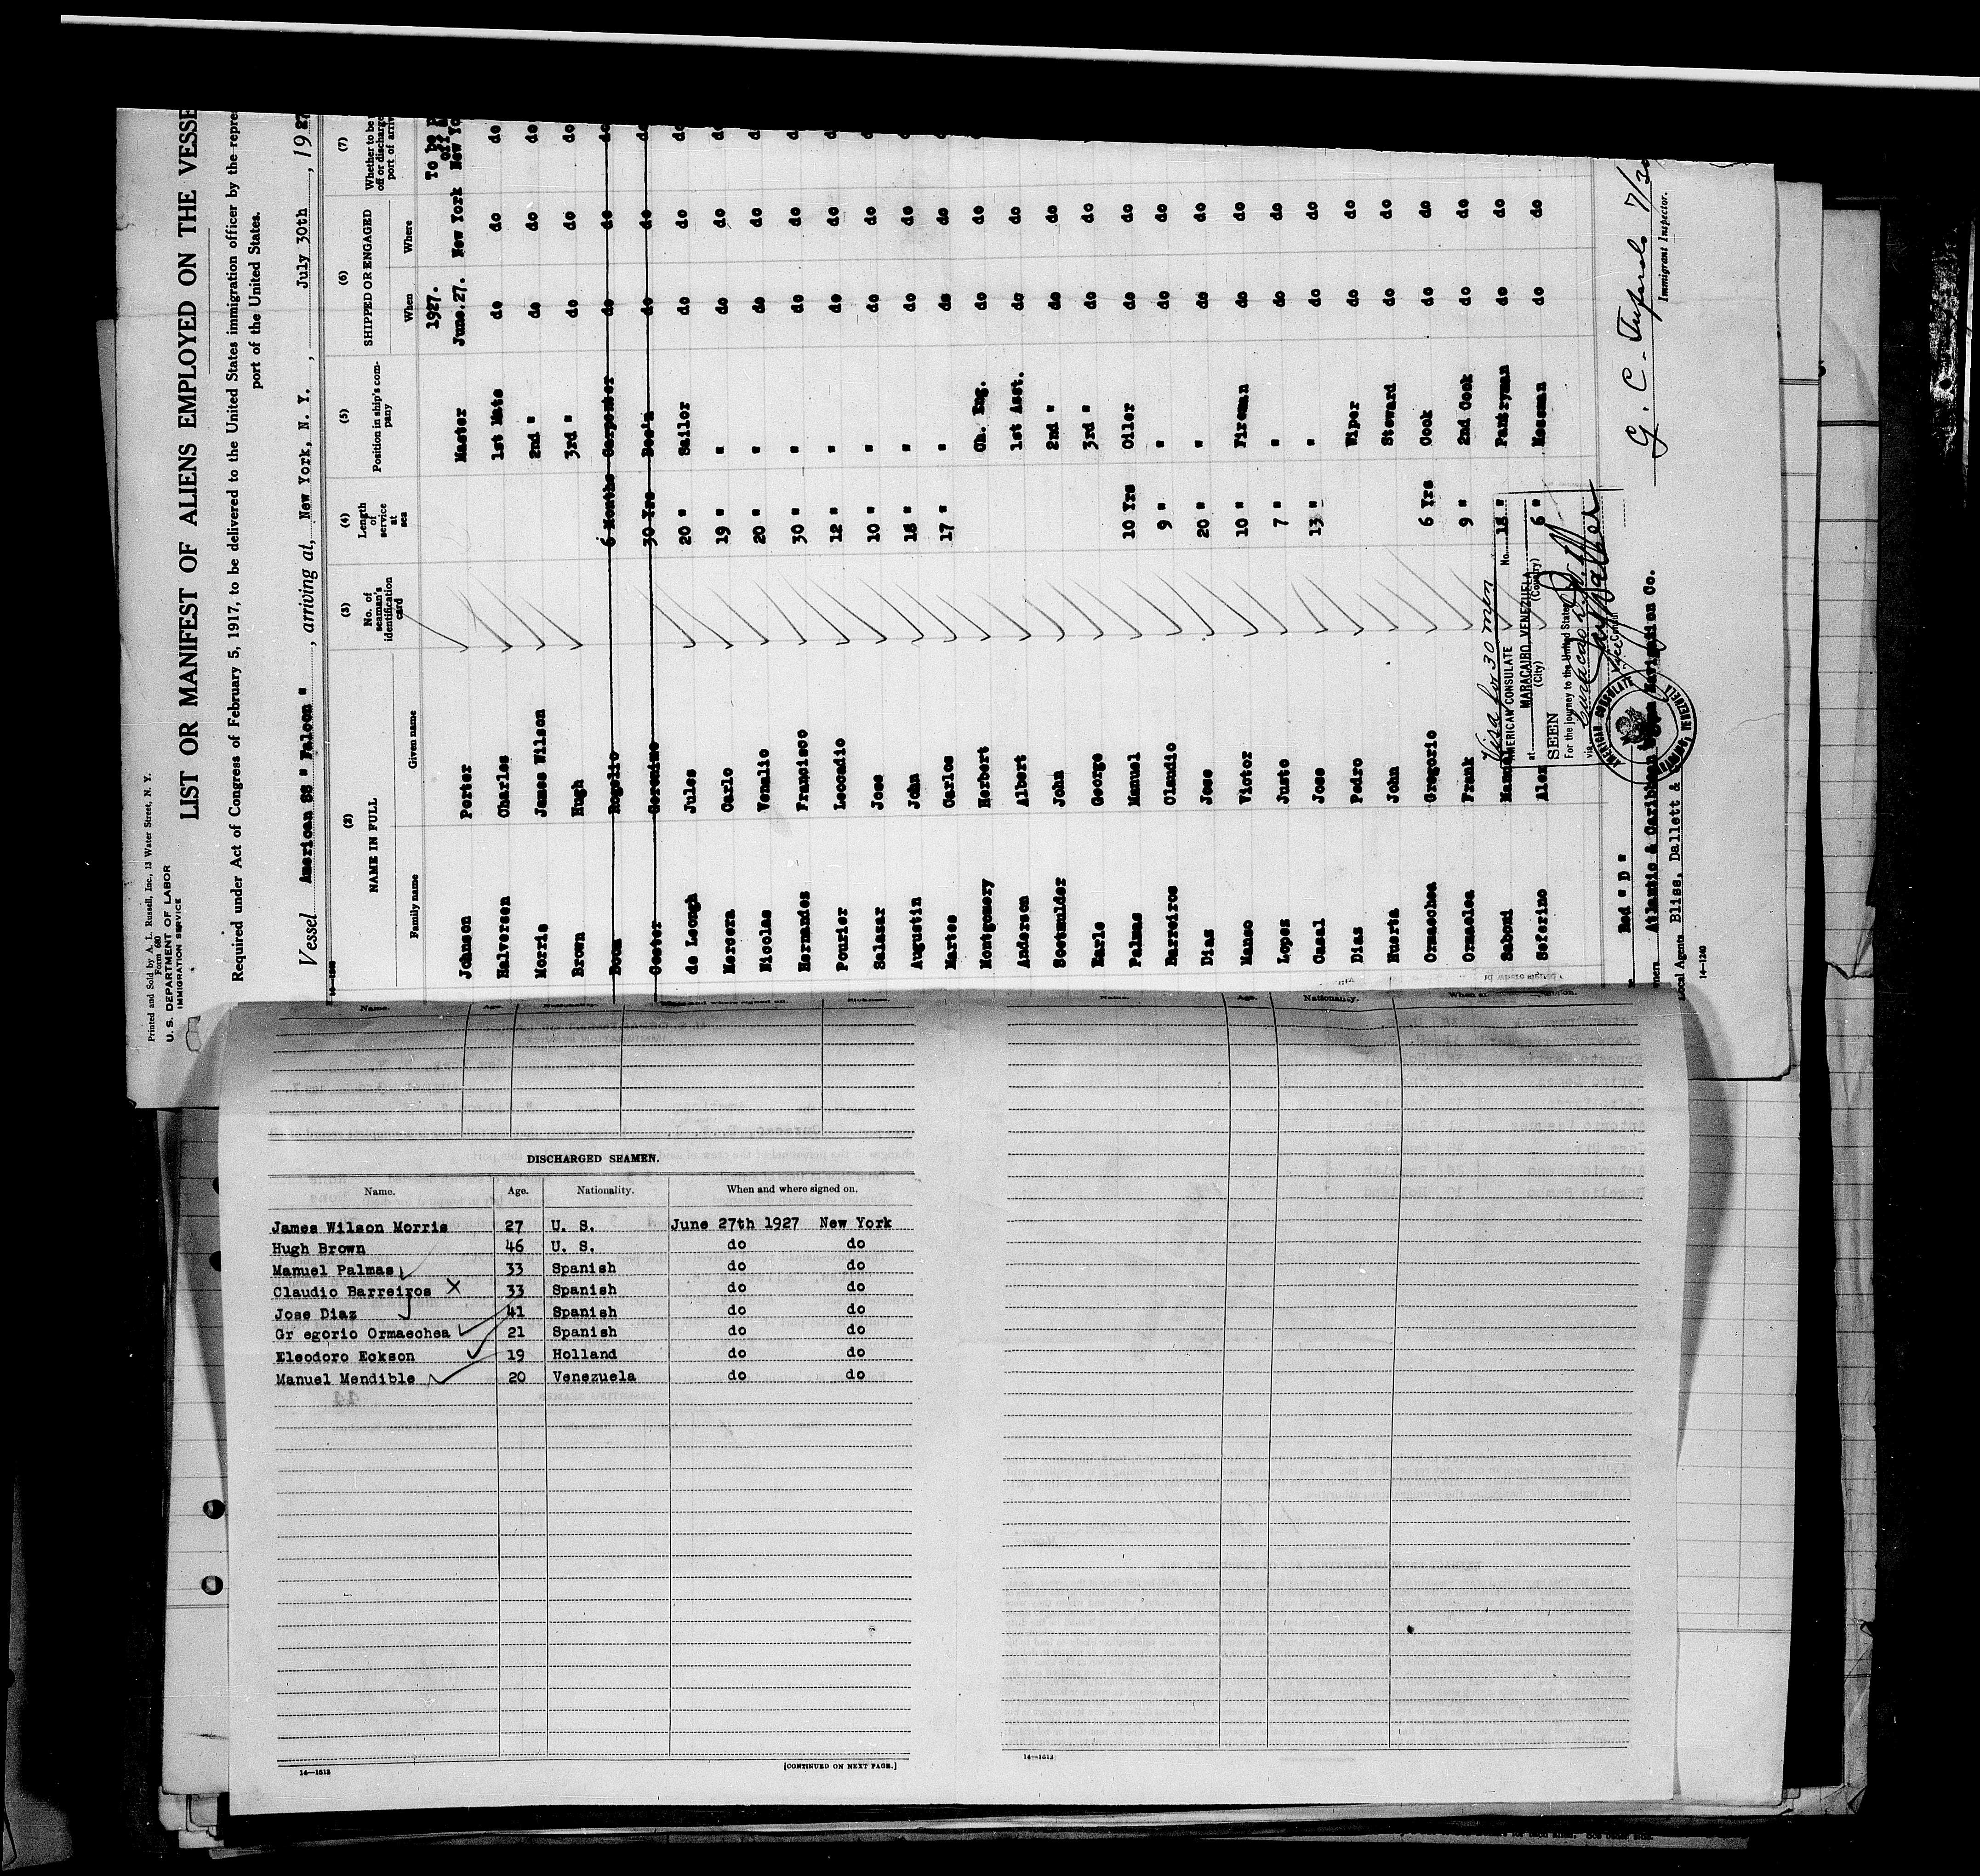 Printed and Sold by A. L. Russell, Inc., 13 Water Street, N. Y.
Form 680
U. S. DEPARTMENT OF LABOR
IMMIGRATION SERVICE
LIST OR MANIFEST OF ALIENS EMPLOYED ON THE VESSE
Required under Act of Congress of February 5, 1917, to be delivered to the United States immigration officer by the repre
port of the United States.
Vessel American SS " Falcon ", arriving at, New York, N. Y., July 30th, 1927
(2) (3) (4) (5) (6) (7)
NAME IN FULL
No. of seaman's identification card
Length of service at sea
Position in ship's company
SHIPPED OR ENGAGED
Whether to be off or discharge port of arriv
Family name Given name When Where
1927. To be P
off a
Johnson Porter Master June.27. New York New Yo
Halversen Charles 1st Mate do do do
Morris James Wilson 2nd " do do do
Brown Hugh 3rd " do do do
Boom Rogelio 6 Months Carpenter do do do
Coster Geronimo 30 Yrs Bos'n do do do
de Leongh Jules 20 " Sailor do do do
Mercera Carlo 19 " " do do d
Nicolas Venalio 20 " " do do d
Hernandez Francisco 30 " " do do d
Pourier Leocadio 12 " " do do d
Salazar Jose 10 " " do do
Augustin John 18 " " do do
Martes Carlos 17 " " do do
Montgomery Herbert Ch. Eng. do do
Andersen Albert 1st Asst. do do
Soetmulder John 2nd " do do
Earle George 3rd " do do
Palmas Manuel 10 Yrs Oiler do do
Barreiros Claudio 9 " " do do
Dias Jose 20 " " do do
Manso Victor 10 " Fireman do do
Lopez Justo 7 " " do do
Casal Jose 13 " " do do
Diaz Pedro Wiper do do
Huerta John Steward do do
Ormaechea Gregorio 6 Yrs Cook do do
Ormalea Frank 9 " 2nd Cook do do
Saboni Manuel 18 " Pantryman do do
Seferino Alex 6 " Messman do do
Visa for 30 men
AMERICAN CONSULATE No.
at MARACAIBO, VENEZUELA
(City) (Country)
SEEN
For the journey to the United States
via Curacao
Vice Consul
AMERICAN CONSULATE
Red " D "
Atlantic & Caribbean Navigation Co.
Local Agents Bliss, Dallett &
14—1240
G. C. 7/30
Immigrant Inspector.
Name. Age. Nationality.
Name. Age. Nationality.
DISCHARGED SEAMEN.
Name. Age. Nationality. When and where signed on.
James Wilson Morris 27 U. S. June 27th 1927 New York
Hugh Brown 46 U. S. do do
Manuel Palmas 33 Spanish do do
Claudio Barreiros X 33 Spanish do do
Jose Diaz 41 Spanish do do
Gr egorio Ormaechea 21 Spanish do do
Eleodoro Eckson 19 Holland do do
Manuel Mendible 20 Venezuela do do
14—1613
[CONTINUED ON NEXT PAGE.]
14—1613